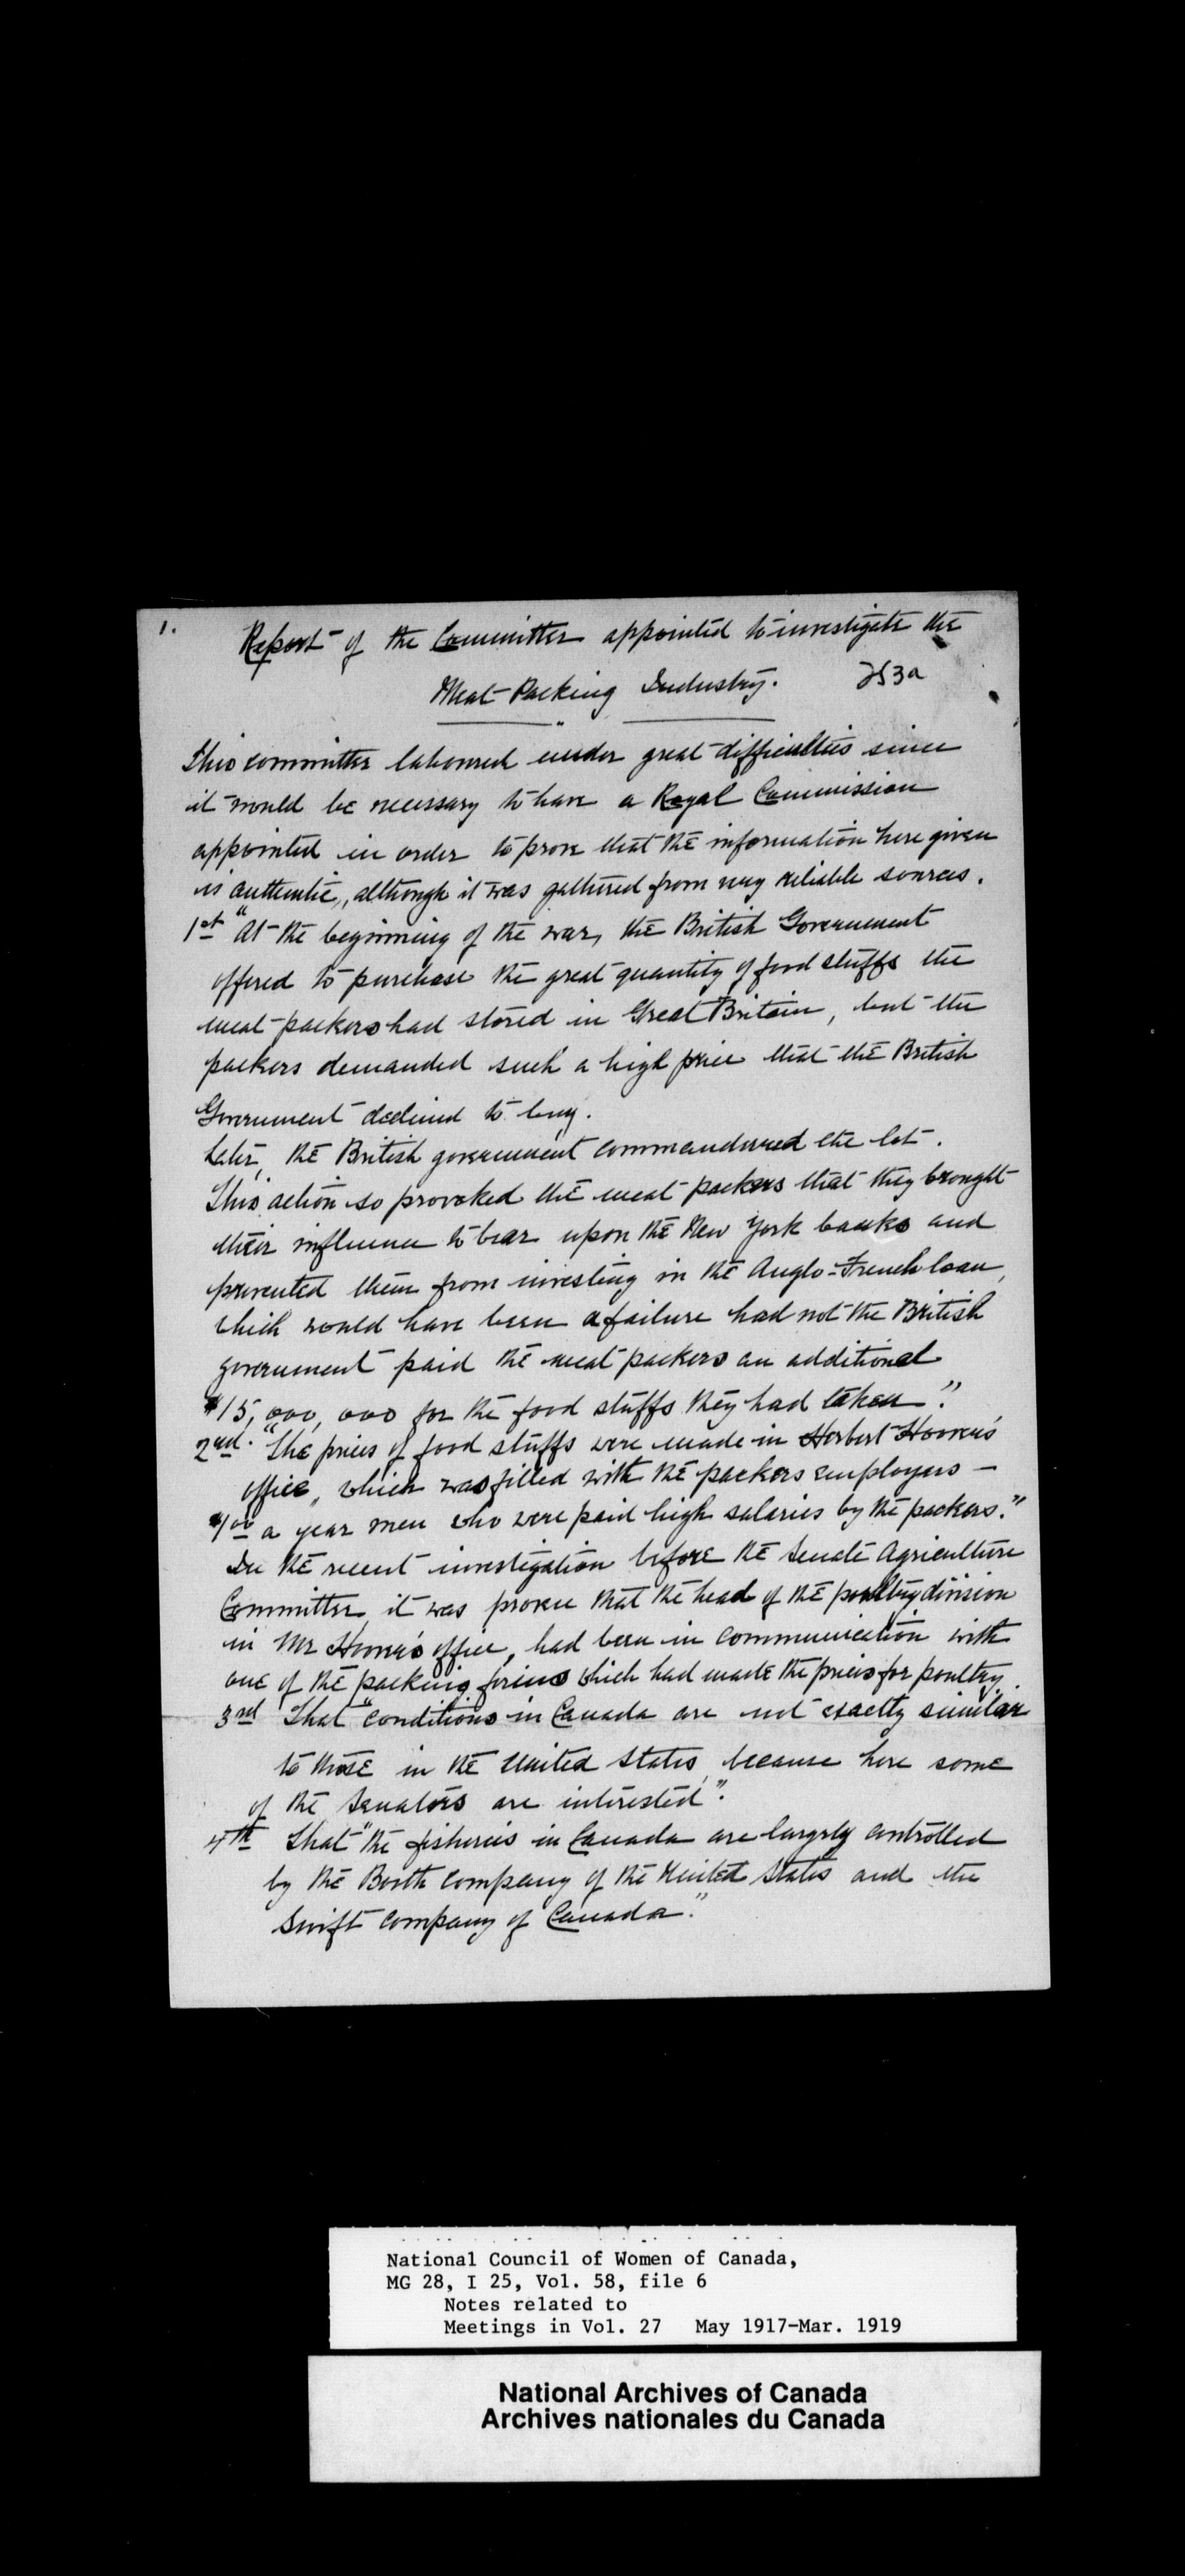 1.
Report of the Committee appointed to investigate the
Meat Packing Industry. 253a
This committee laboured under great difficulties since
it would be necessary to have a Royal Commission
appointed in order to prove that the information here given
is authentic, although it was gathered from very reliable sources.
1st "At the beginning of the war, the British Government
offered to purchase the great quantity of food stuffs the
meat packers had stored in Great Britain, but the
packers demanded such a high price that the British
Government declined to buy.
Later, the British government commandeered the lot.
This action so provoked the meat packers that they brought
their influence to bear upon the New York banks and
prevented them from investing in the Anglo-French loan,
which would have been a failure had not the British
government paid the meat packers an additional
$15,000,000 for the food stuffs they had taken."
2nd. "The prices of food stuffs were made in Herbert Hoover's
office, which was filled with the packers employers —
$1 00 a year men who were paid high salaries by the packers."
In the recent investigation before the Senate Agriculture
Committee, it was proven that the head of the poultry division
in Mr Hoover's office, had been in communication with
one of the packing firms which had made the prices for poultry.
3rd That "conditions in Canada are not exactly similar
to those in the United States, because here some
of the Senators are interested".
4th That "the fisheries in Canada are largely controlled
by the Booth Company of the United States and the
Swift Company of Canada."
National Council of Women of Canada,
MG 28, I 25, Vol. 58, file 6
Notes related to
Meetings in Vol. 27 May 1917-Mar. 1919
National Archives of Canada
Archives nationales du Canada